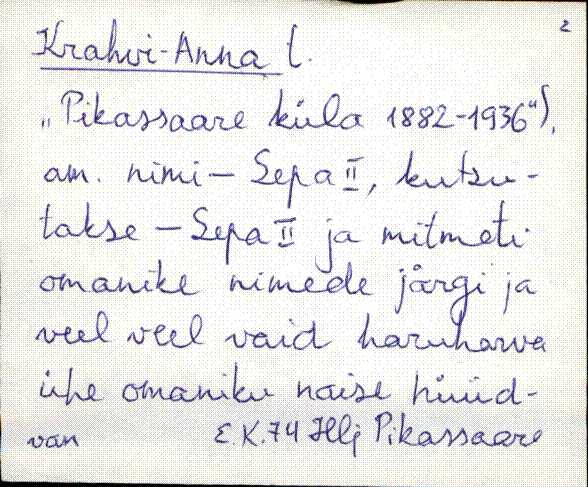 2
Krahvi-Anna t.
„Pikassaare küla 1882-1936“),
am. nimi – Sepa II, kutsu-
takse – Sepa II ja mitmeti
omanike nimede järgi ja
veel veel vaid haruharva
ühe omaniku naise hüüd-
van E.K. 74 Hlj Pikassaare